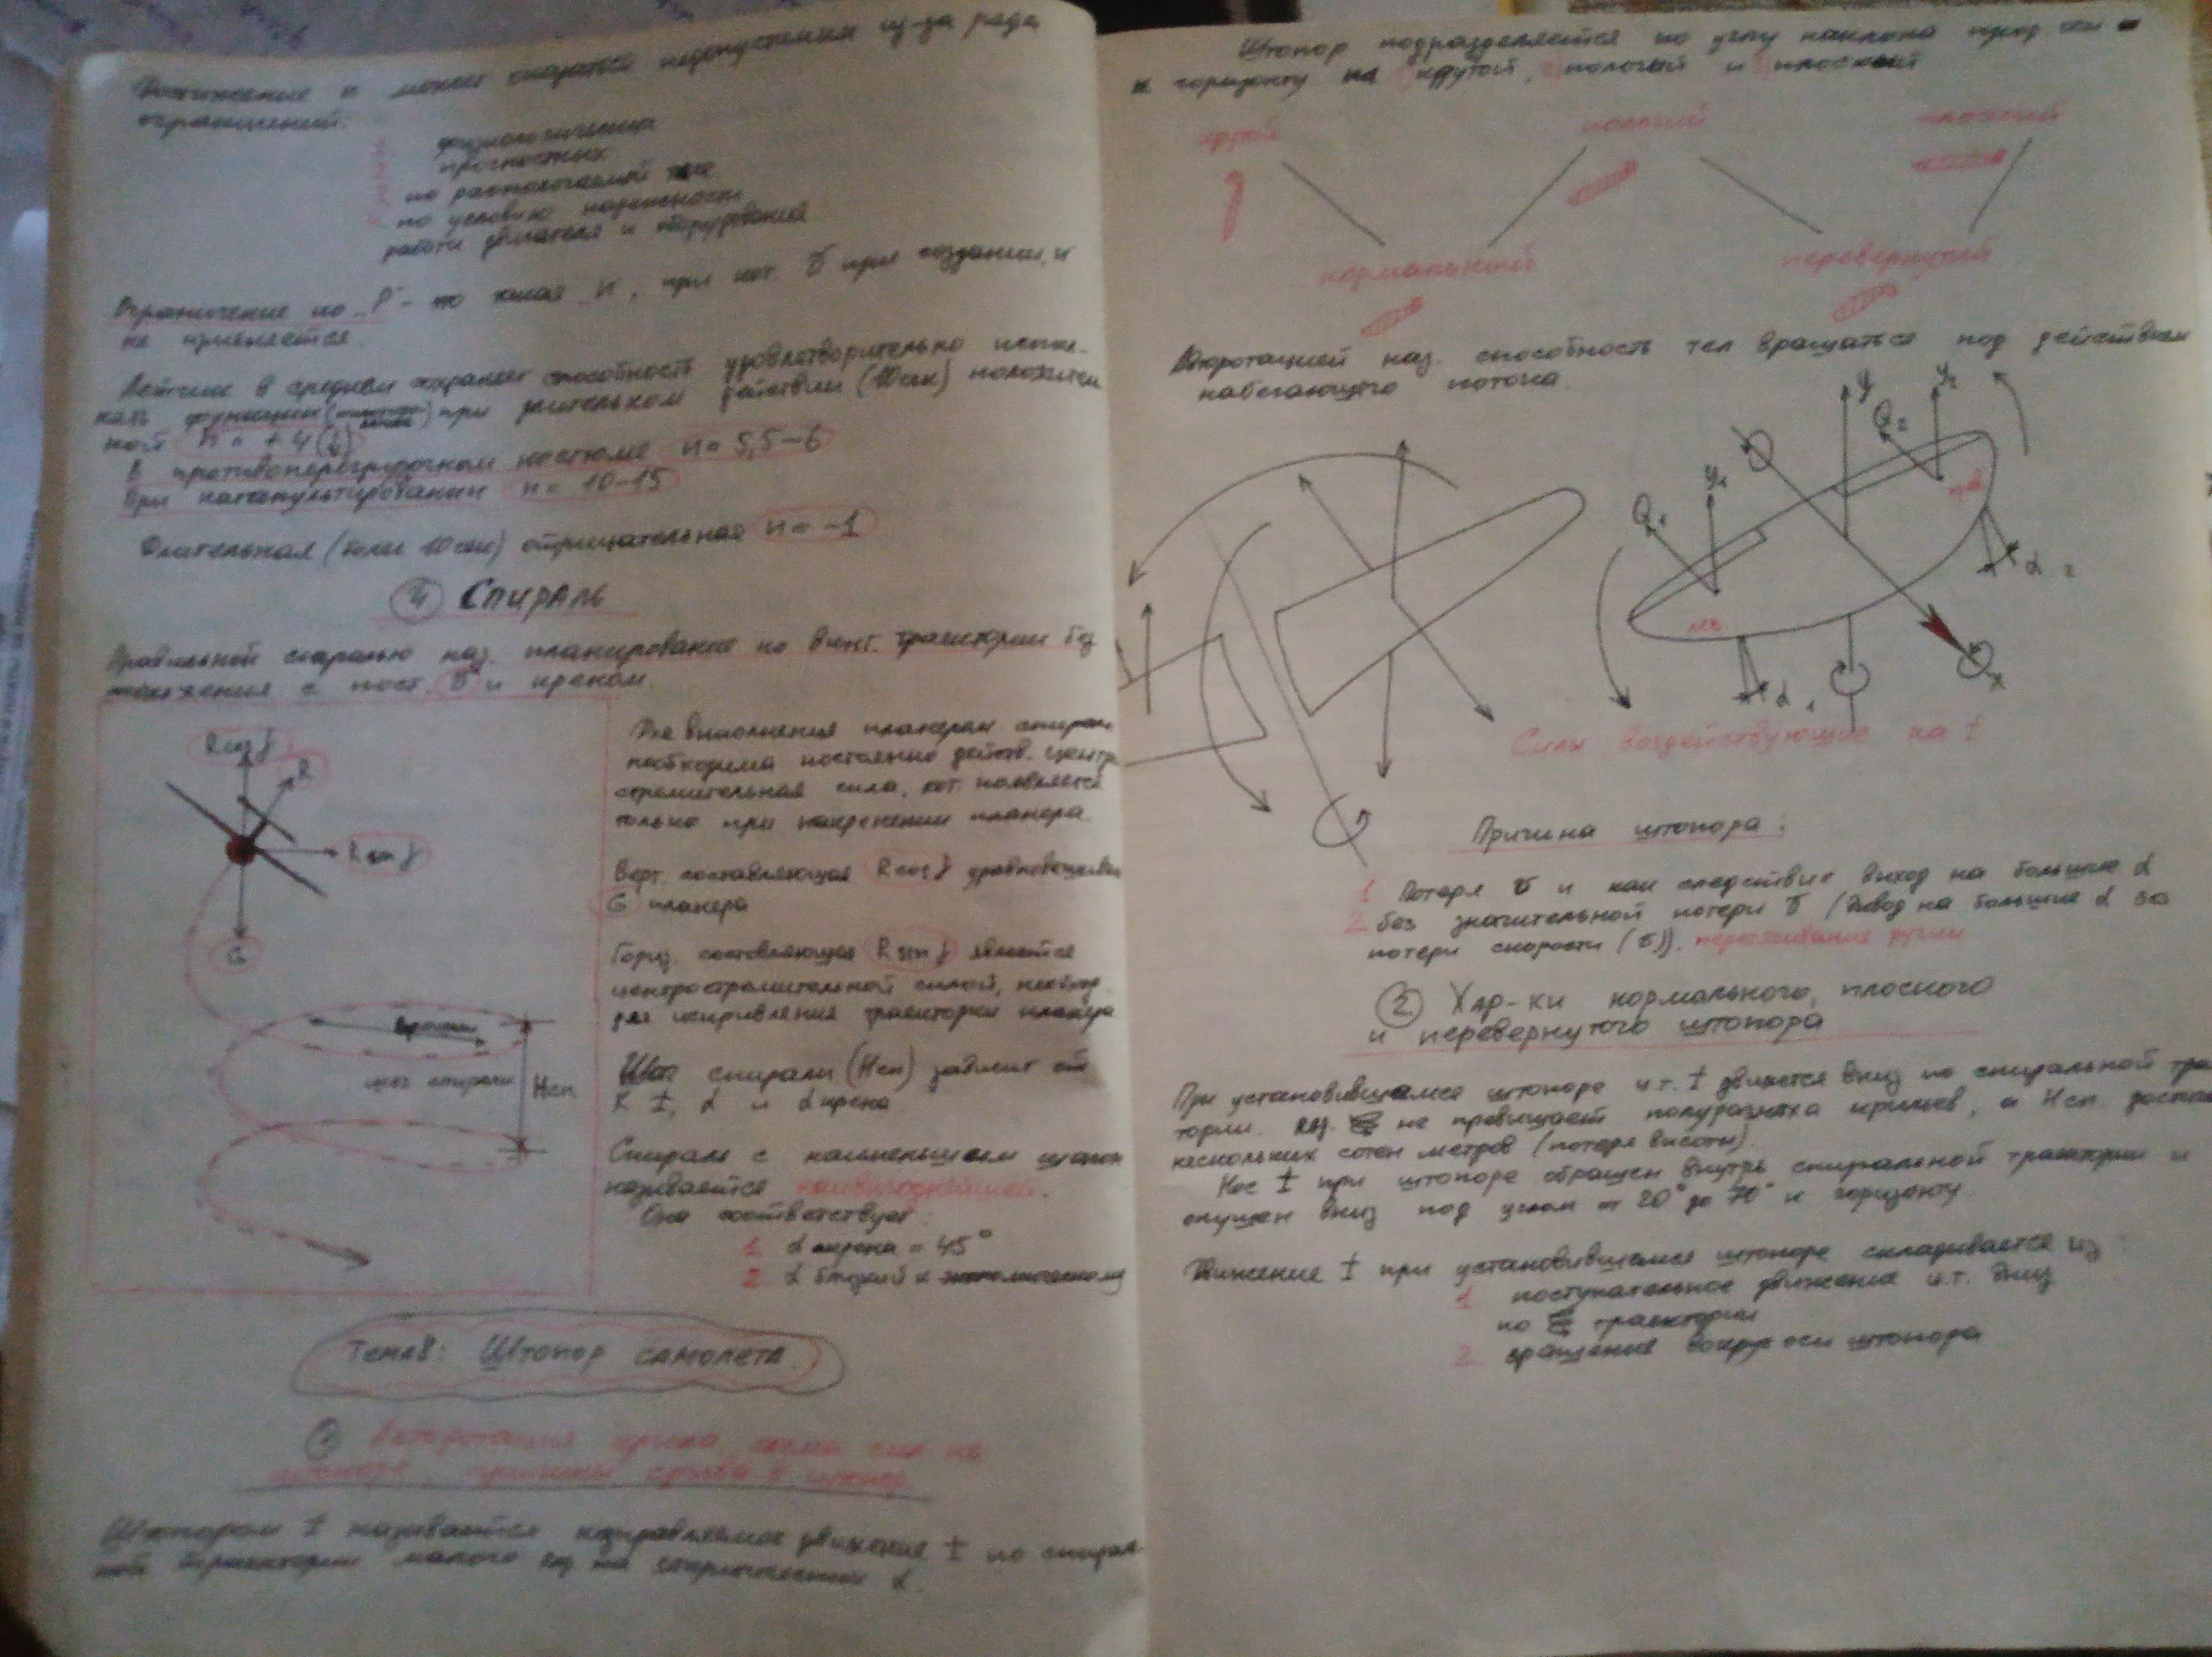 может оказаться недопустимым из-за ряда
ограничений.
физиологических
прочностных
по располагаемой тяге
по условию надежности
работы двигателя и оборудования
Ограничение по P - то такая n, при кот. V при создании n
не изменяется.
Летчик в среднем сохраняет способность удовлетворительно
функции при длительном действии (10сек)
ной n = +4 (↓)
В противоперегрузочном костюме n = 5,5-6
При катапультировании n = 10-15
Длительная (10сек) отрицательная n = -1
4 Спираль
Правильной спиралью наз. планирование по винт. траектории без
скольжения с пост. V и креном.
R cos γ
R
R sin γ
G
шаг спирали
Hсп
Для выполнения планером спирали
необходима постоянно действ. центро
стремительная сила, кот. появляется
только при накренении планера.
Верт. составляющая R cos γ уравновешивает
G планера
Гориз. составляющая R sin γ является
центростремительной силой, необход.
для искривления траектории планера
Шаг спирали (Hсп) зависит от
K ±, α и α крена
Спираль с наименьшим шагом
называется наивыгоднейшей.
Она соответствует:
1. α крена = 45°
2. α близкий к экономическому
Тема 8: Штопор самолета.
1 Авторотация крыла, силы на
штопоре, причины срыва в штопор
Штопором ± называется неуправляемое движение ± по спирал
ной траектории малого на закритических α.
Штопор подразделяется по углу наклона
к горизонту на крутой, пологий и плоский
крутой
пологий
плоский
нормальный
перевернутый
Авторотацией наз. способность тел вращаться под действием
набегающего потока.
Q₁
y₁
y
Q₂
y₂
лев
прав
α₁
α₂
x
Силы воздействующие на ±
Причина штопора:
1 Потеря V и как следствие выход на большие α
2 без значительной потери V (Вывод на большие α без
потери скорости (V)). перетягивание ручки
2. Хар-ки нормального, плоского
и перевернутого штопора
При установившемся штопоре ц.т. ± движется вниз по спиральной тра
тории. не превышает полуразмаха крыльев, а Hсп
нескольких сотен метров (потеря высоты).
Нос ± при штопоре обращен внутрь спиральной траектории и
опущен вниз под углом от 20° до 70° к горизонту.
Движение ± при установившемся штопоре складывается из:
1. поступательное движение ц.т. вниз
по траектории
2. вращение вокруг оси штопора